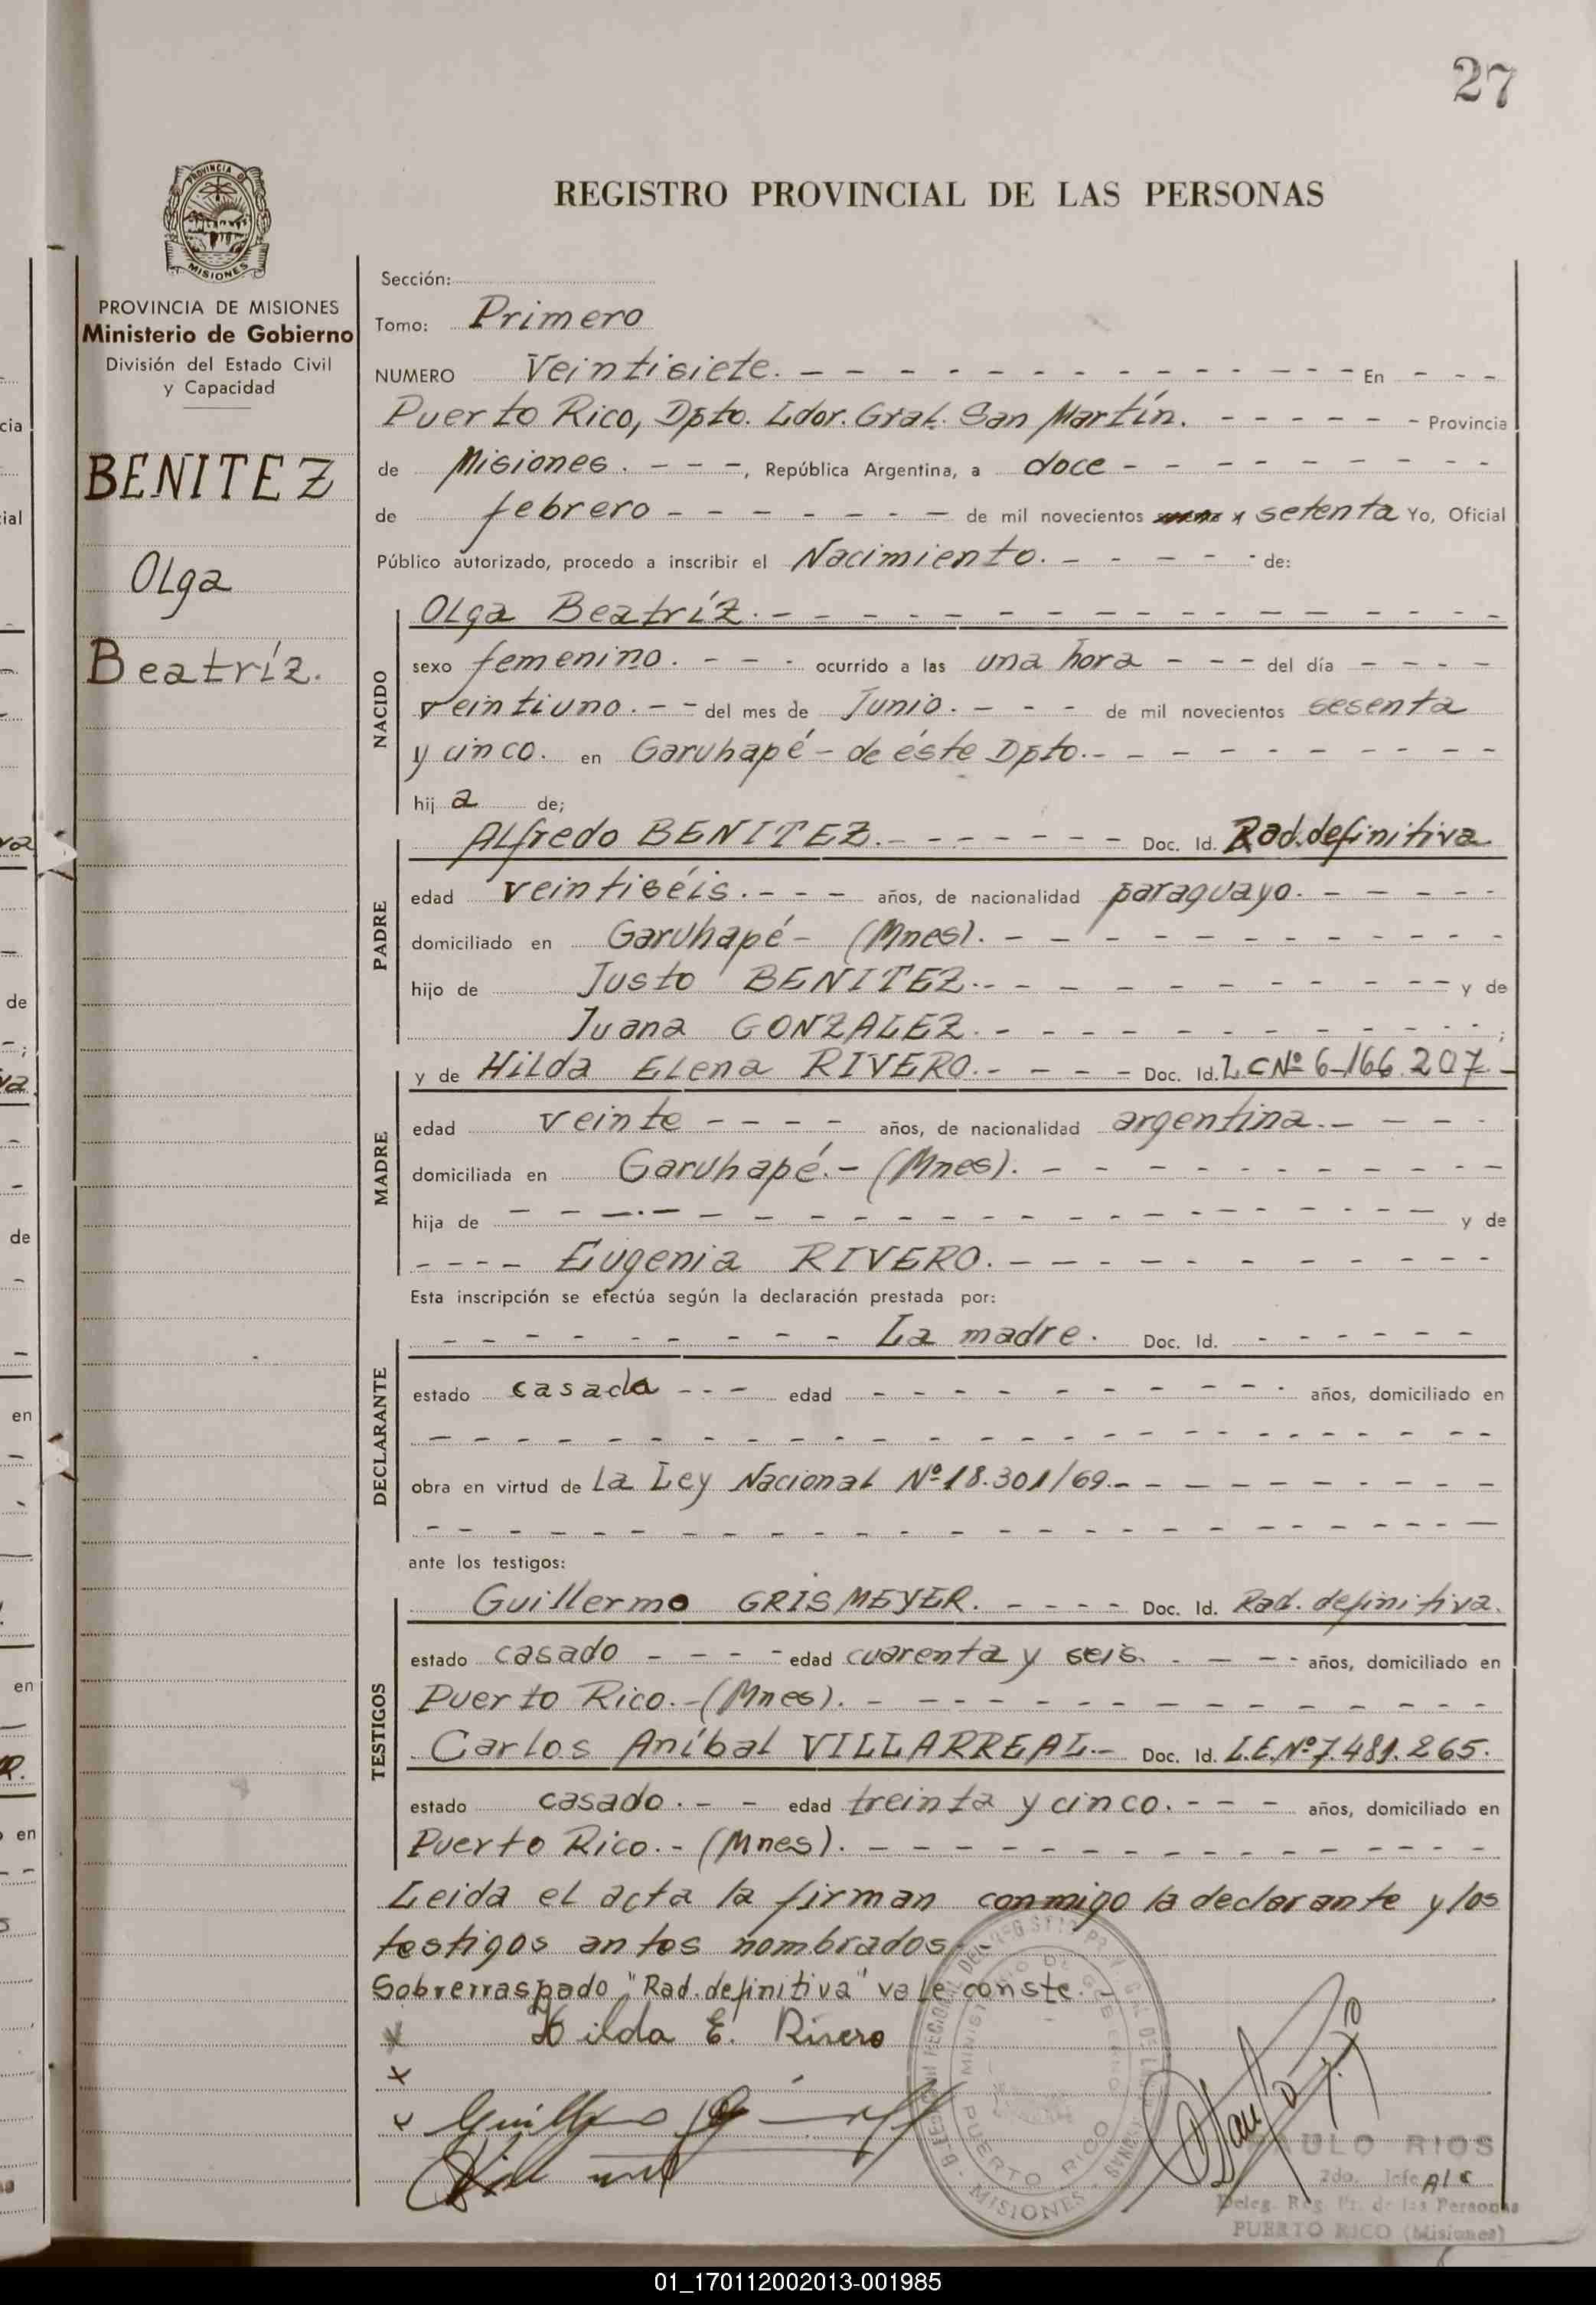 27
PROVINCIA DE
MISIONES
REGISTRO PROVINCIAL DE LAS PERSONAS
PROVINCIA DE MISIONES
Ministerio de Gobierno
División del Estado Civil
y Capacidad
BENITEZ
Olga
Beatríz.
Sección:
Tomo: Primero
NUMERO Veintisiete. - - - En - - -
Puerto Rico, Dpto. Ldor. Gral. San Martín. - - - Provincia
de Misiones. - - -, República Argentina, a doce - - -
de febrero - - - de mil novecientos setenta Yo, Oficial
Público autorizado, procedo a inscribir el Nacimiento. - - - de:
NACIDO
Olga Beatríz. - - -
sexo femenino. - - - ocurrido a las una hora - - - del día - - -
veintiuno. - - del mes de Junio. - - - de mil novecientos sesenta
y cinco. en Garuhapé - de éste Dpto. - - -
hij a de;
PADRE
Alfredo BENITEZ. - - - Doc. Id. Rad. definitiva
edad veintiséis. - - - años, de nacionalidad paraguayo. - - -
domiciliado en Garuhapé - (Mnes). - - -
hijo de Justo BENITEZ. - - - y de
Juana GONZALEZ. - - - ;
MADRE
y de Hilda Elena RIVERO. - - - Doc. Id. L.C Nº 6.166.207. -
edad veinte - - - años, de nacionalidad argentina. - - -
domiciliada en Garuhapé. - (Mnes). - - -
hija de - - - y de
- - - Eugenia RIVERO. - - -
Esta inscripción se efectúa según la declaración prestada por:
DECLARANTE
- - - La madre. Doc. Id. - - -
estado casada - - - edad - - - años, domiciliado en
- - -
obra en virtud de La Ley Nacional Nº 18.301/69. - - -
- - -
ante los testigos:
TESTIGOS
Guillermo GRISMEYER. - - - Doc. Id. Rad. definitiva.
estado casado - - - edad cuarenta y seis. - - - años, domiciliado en
Puerto Rico. - (Mnes). - - -
Carlos Aníbal VILLARREAL. - Doc. Id. L.E. Nº 7.481.265.
estado casado. - - edad treinta y cinco. - - - años, domiciliado en
Puerto Rico. - (Mnes). - - -
Leida el acta la firman conmigo la declarante y los
testigos antes nombrados. -
Sobrerraspado "Rad. definitiva" vale conste. -
x Hilda E. Rivero
x
x
MINISTERIO DE GOBIERNO
PUERTO RICO
MISIONES
ULO RIOS
2do. Jefe A/c
Deleg. Reg. Pr. de las Personas
PUERTO RICO (Misiones)
01_170112002013-001985